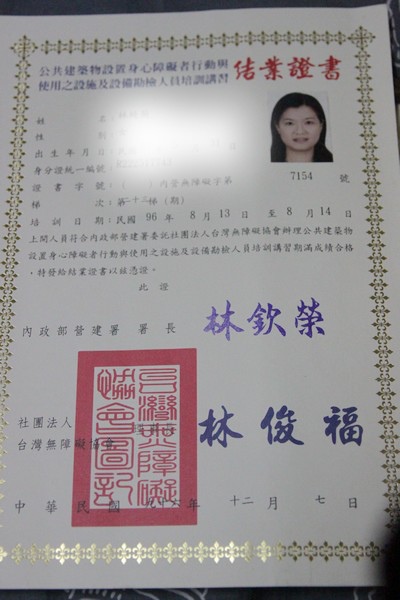 公共建築物設置身心障礙者行動與
使用之設施及設備勘檢人員培訓講習
結業證書
姓名：
性別：
出生年月日：
身分證統一編號：
證書字號：( )內營無障礙字第 7154 號
梯次：第二十三梯(期)
培訓日期：民國 96 年 8 月 13 日 至 8 月 14 日
上開人員符合內政部營建署委託社團法人台灣無障礙協會辦理公共建築物
設置身心障礙者行動與使用之設施及設備勘檢人員培訓講習期滿成績合格
，特發給結業證書以茲憑證。
此證
內政部營建署 署長 林欽榮
社團法人
台灣無障礙協會
林俊福
中華民國九十六年 十二月 七日